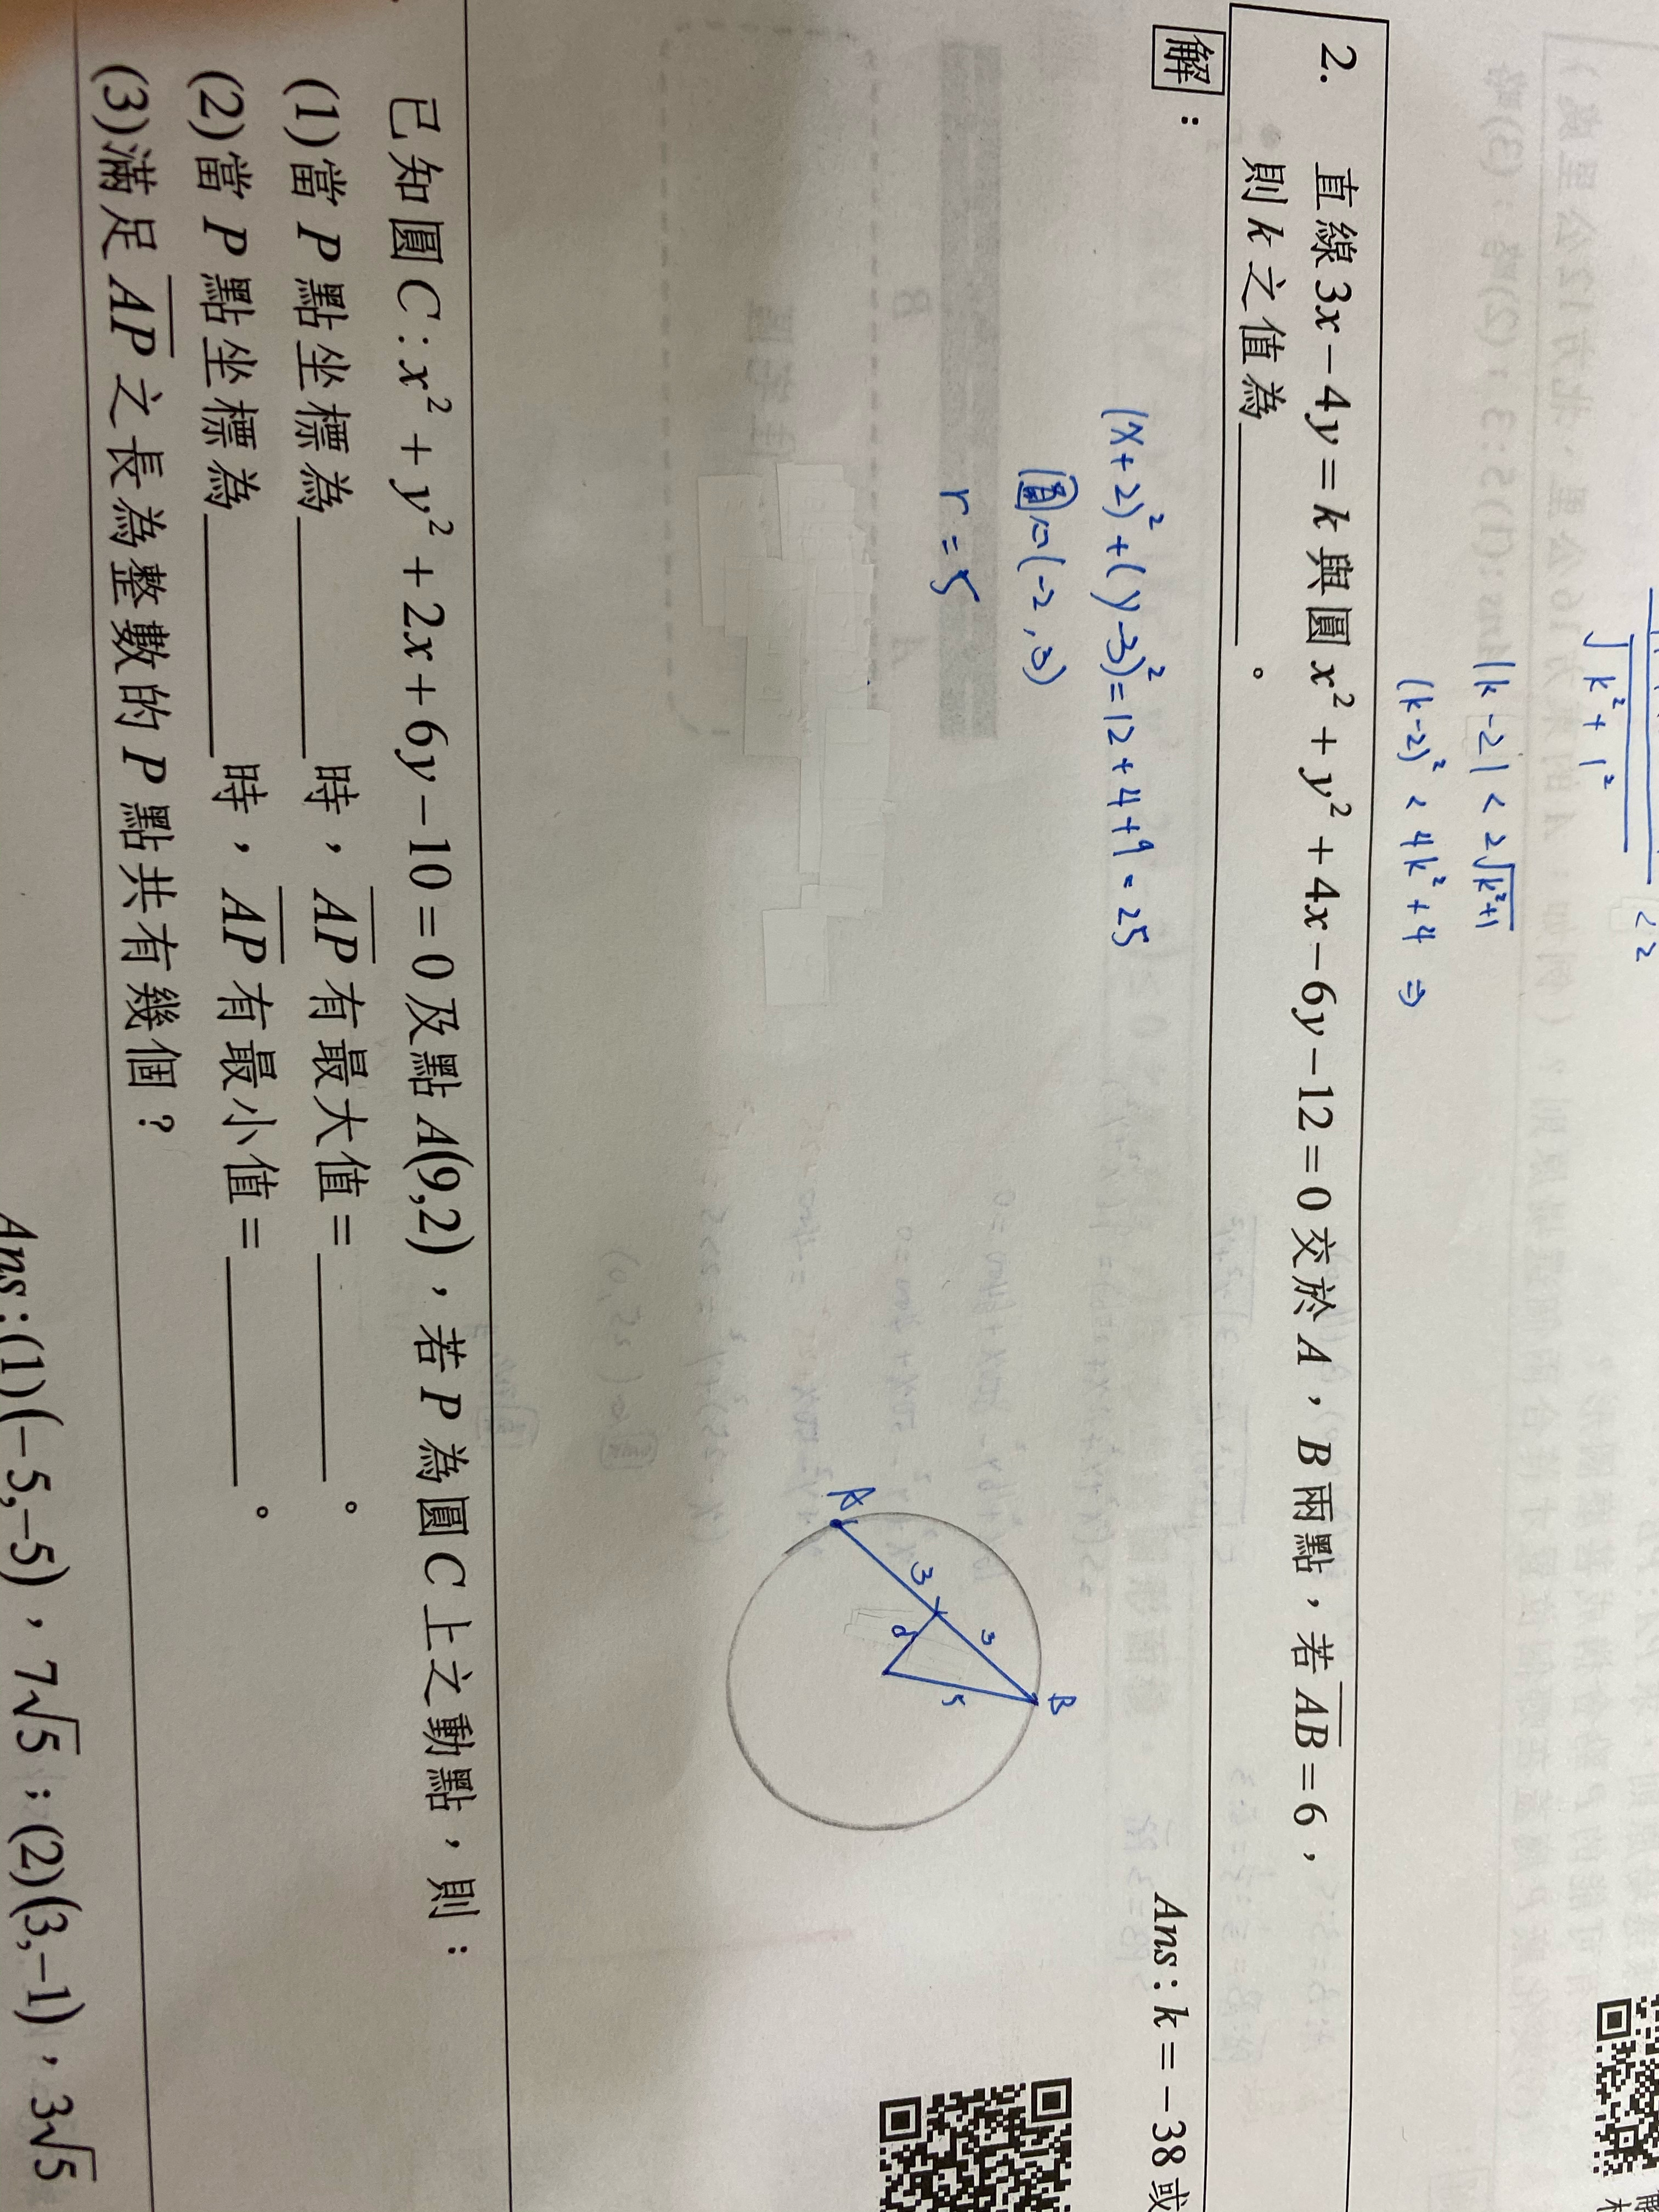 √k²+1² < 2
|k-2| < 2√k²+1
(k-2)² < 4k²+4 ⇒
2. 直線 3x-4y=k 與圓 x²+y²+4x-6y-12=0 交於 A,B 兩點,若 AB=6,
則 k 之值為________。
Ans:k=-38或
解:
(x+2)²+(y-3)²=12+4+9=25
圓心(-2,3)
r=5
A
B
3
3
d
5
已知圓 C:x²+y²+2x+6y-10=0 及點 A(9,2),若 P 為圓 C 上之動點,則:
(1)當 P 點坐標為________時,AP 有最大值=________。
(2)當 P 點坐標為________時,AP 有最小值=________。
(3)滿足 AP 之長為整數的 P 點共有幾個?
Ans:(1)(-5,-5),7√5;(2)(3,-1),3√5